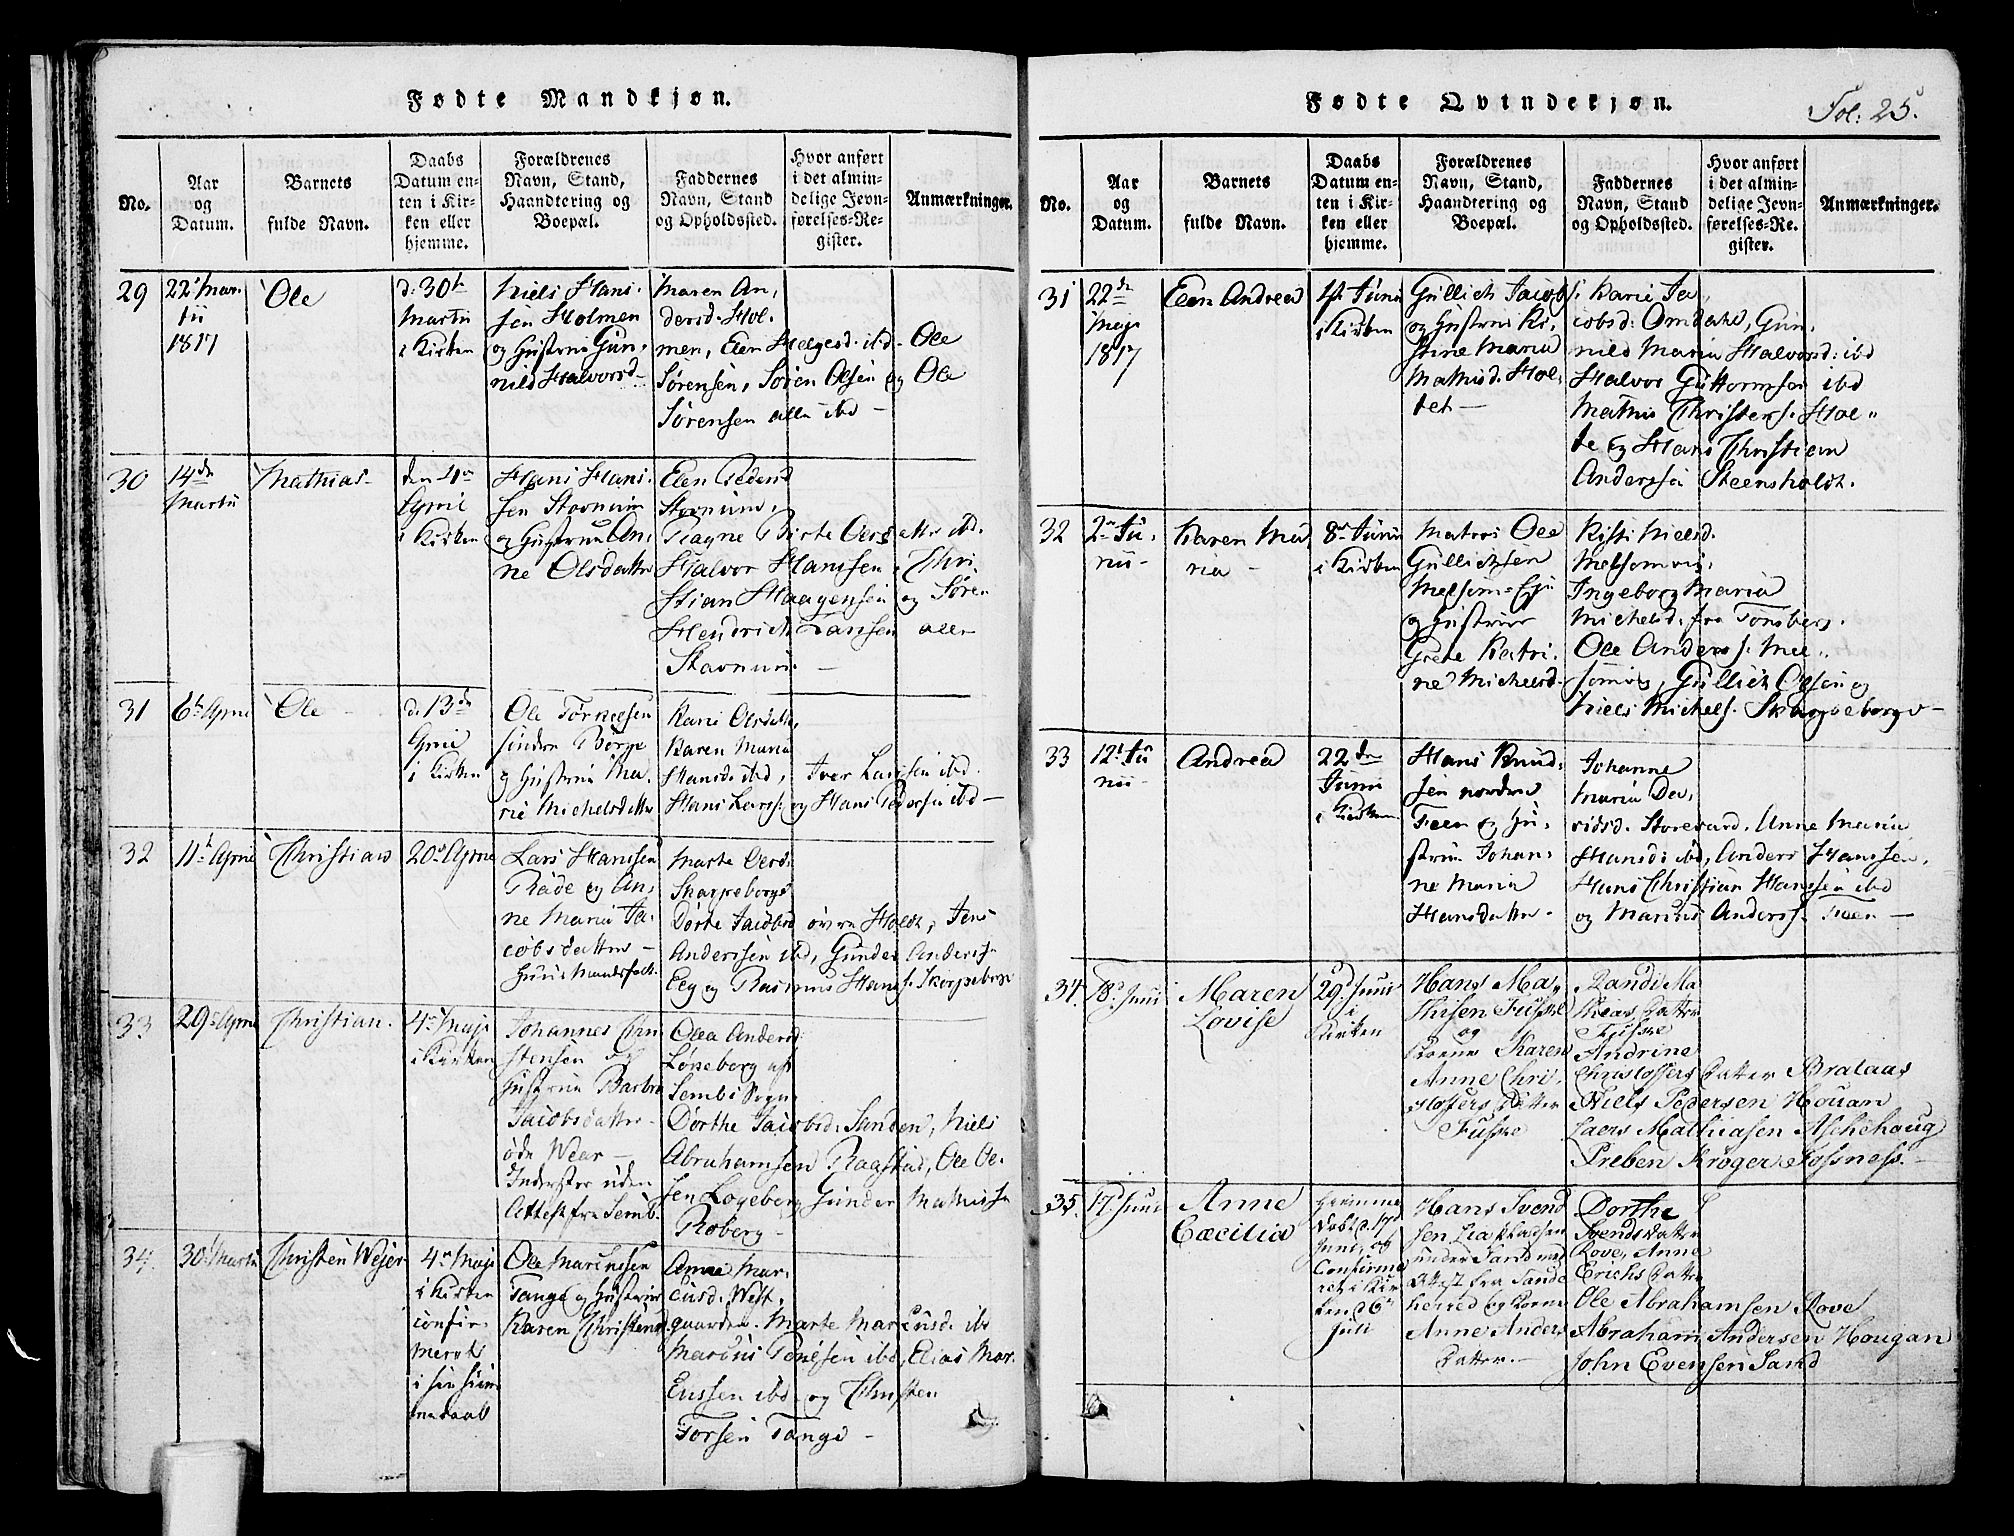 Fødte Mandkjøn.
No.
Aar
og
Datum.
Barnets
fulde Navn.
Daabs
Datum en-
ten i Kir-
ken eller
hjemme.
Forældrenes
Navn, Stand,
Haandtering og
Boepæl.
Faddernes
Navn, Stand
og Opholdssted.
Hvor anført
i det almin-
delige Jevn-
førelses-Re-
gister.
Anmærkninger.
29
22 Mar-
tii
1817
Ole
d. 30te
Martii
i Kirken
Niels Han-
sen Holmen
og Hustrue Gun-
nild Halvorsd
Maren An-
dersd. Hol-
men, Elen Helgesd. ibd- Ole
Sørensen, Søren Olsen og Ole
Sørensen alle ibd -
30
14de
Martii
Mathias
den 4de
April
i Kirken
Hans Han-
sen Stovnum
og Hustrue An-
ne Olsdatter
Elen Pedersd
Stovnum,
Ragne Birte Olds atter ibd.
Halvor Hanssen, Chri-
stian Haagensen og Søren
Hendrich Larssen alle
Stovnum.
31
6te April
Ole
d. 13de
April
i Kirken
Ole Tørrissen
søndre Borge
og Hustrue Ma-
rie Michelsdatter
Kari Olsdatter
Karen Maria
Hansd. ibd, Iver Larssen ibd.
Hans Larss. og Hans Pedersen ibd -
32
11te April
Christian
20de April
Lars Hanssen
Råde og An-
ne Maria Ja-
cobsdatter -
Huusmandsfolk.
Marte Olesd.
Skarpeborge
Dorte Jacobsd øvre Holdt, Jens
Anderssen ibd, Gunder Anderss.
Eeg og Rasmus Hanss. Skorpeborge
33
29de April
Christian.
4de Maji
i Kirken
Johannes Chri-
stensen og
Hustrue Barbro
Jacobsdatter -
øde Wear -
Inderster uden
Attest fra Semb.
Olea Andersd
Løneborg af
Sembs Sogn
Dorthe Jacobsd. Sanden, Niels
Abrahamsen Ragstad, Ole Ol-
sen Løgeberg Gunder Mathisen
Roberg -
34.
30te Martii
Christen Wejer
4de Maji
i Kirken
confir-
meret
i sin hiem-
medaab
Ole Marcussen
Tange og Hustrue
Karen Christensd.
Anne Mar-
cusd. West-
gaarden. Marte Marcusd. ibd
Marcus Tenssen ibd, Elias Mar-
cussen ibd og Christen
Torsen Tange -
Fødte Qvindekjøn.
Fol: 25.
No.
Aar
og
Datum.
Barnets
fulde Navn.
Daabs
Datum en-
ten i Kir-
ken eller
hjemme.
Forældrenes
Navn, Stand,
Haandtering og
Boepæl.
Faddernes
Navn, Stand
og Opholdssted.
Hvor anført
i det almin-
delige Jevn-
førelses-Re-
gister.
Anmærkninger.
31
22de
Maji
1817
Elen Andrea
1ste Junii
i Kirken
Gullich Jacobs.
og Hustrue Ki-
stine Maria
Mathisd. Hol-
tet -
Karie Ja-
cobsd: Omdahl, Gun-
nild Maria Halvorsd: ibd
Halvor Guttormsen ibd
Mathis Christens. Hol-
te og Hans Christian
Anderssen Steensholdt.
32
2den Ju-
nii -
Karen Ma-
ria -
8de Junii
i Kirken
Matros Ole
Gullichsen
Melsom-Eje
og Hustrue
Grete Katri-
ne Michelsd.
Kisti Nielsd.
Melsomvig,
Ingeborg Maria
Michelsd. fra Tønsberg.
Ole Anderss. Mel-
somvig, Gullich Olsen og
Niels Michels. Skarpeborg -
33
12te Ju
nii -
Andrea
22den
Junii
i Kirken
Hans Knud-
sen nordre
Feen og Hu-
strue Johan-
ne Maria
Hansdatter -
Johanne
Maria Da-
vidsd. Storevard. Anne Maria
Hansd: ibd, Anders Hanssen,
Hans Christian Hanssen ibd
og Marius Anderss. Feen -
34.
18d. Juni
Maren
Lovise
29d. Juni
i
Kirken
Hans Ma-
thisen Fuske
og
Kone Karen
Anne Chri-
stoffers Datter
Fuske
Randi Ma
thias Datter
Fuske
Andrine
Christoffers Datter Bralaas
Niels Pedersen Houan
Laers Mathiasen Askehaug
Preben Krøger Fossness. -
35.
17. Juni
Anne
Cæcilia
hiemme
døbt d. 17d
Juni, og
Confirme
ret i Kir
ken d 6te
Juli
Hans Svend
sen Lia pladsen
under Sand med
Attest fra Sande
herred og Kone
Anne Anders
Datter. -
Dorthe
Svends Datter
Rove, Anne
Erichs Datter
Ole Abrahamsen Rove
Abraham Andersen Hougan
John Evensen Sand